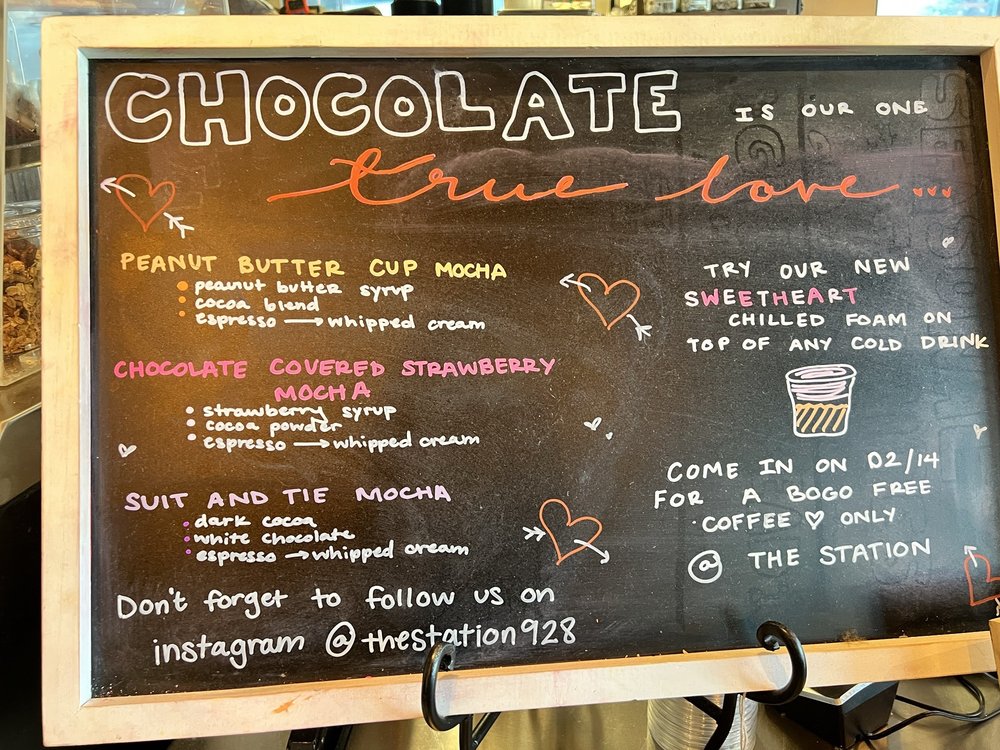 CHOCOLATE IS OUR ONE
true love...
PEANUT BUTTER CUP MOCHA
• peanut butter syrup
• cocoa blend
• espresso → whipped cream
CHOCOLATE COVERED STRAWBERRY
MOCHA
• strawberry syrup
• cocoa powder
• espresso → whipped cream
SUIT AND TIE MOCHA
• dark cocoa
• white chocolate
• espresso → whipped cream
Don't forget to follow us on
instagram @thestation928
TRY OUR NEW
SWEETHEART
CHILLED FOAM ON
TOP OF ANY COLD DRINK
COME IN ON 02/14
FOR A BOGO FREE
COFFEE ♡ ONLY
@ THE STATION